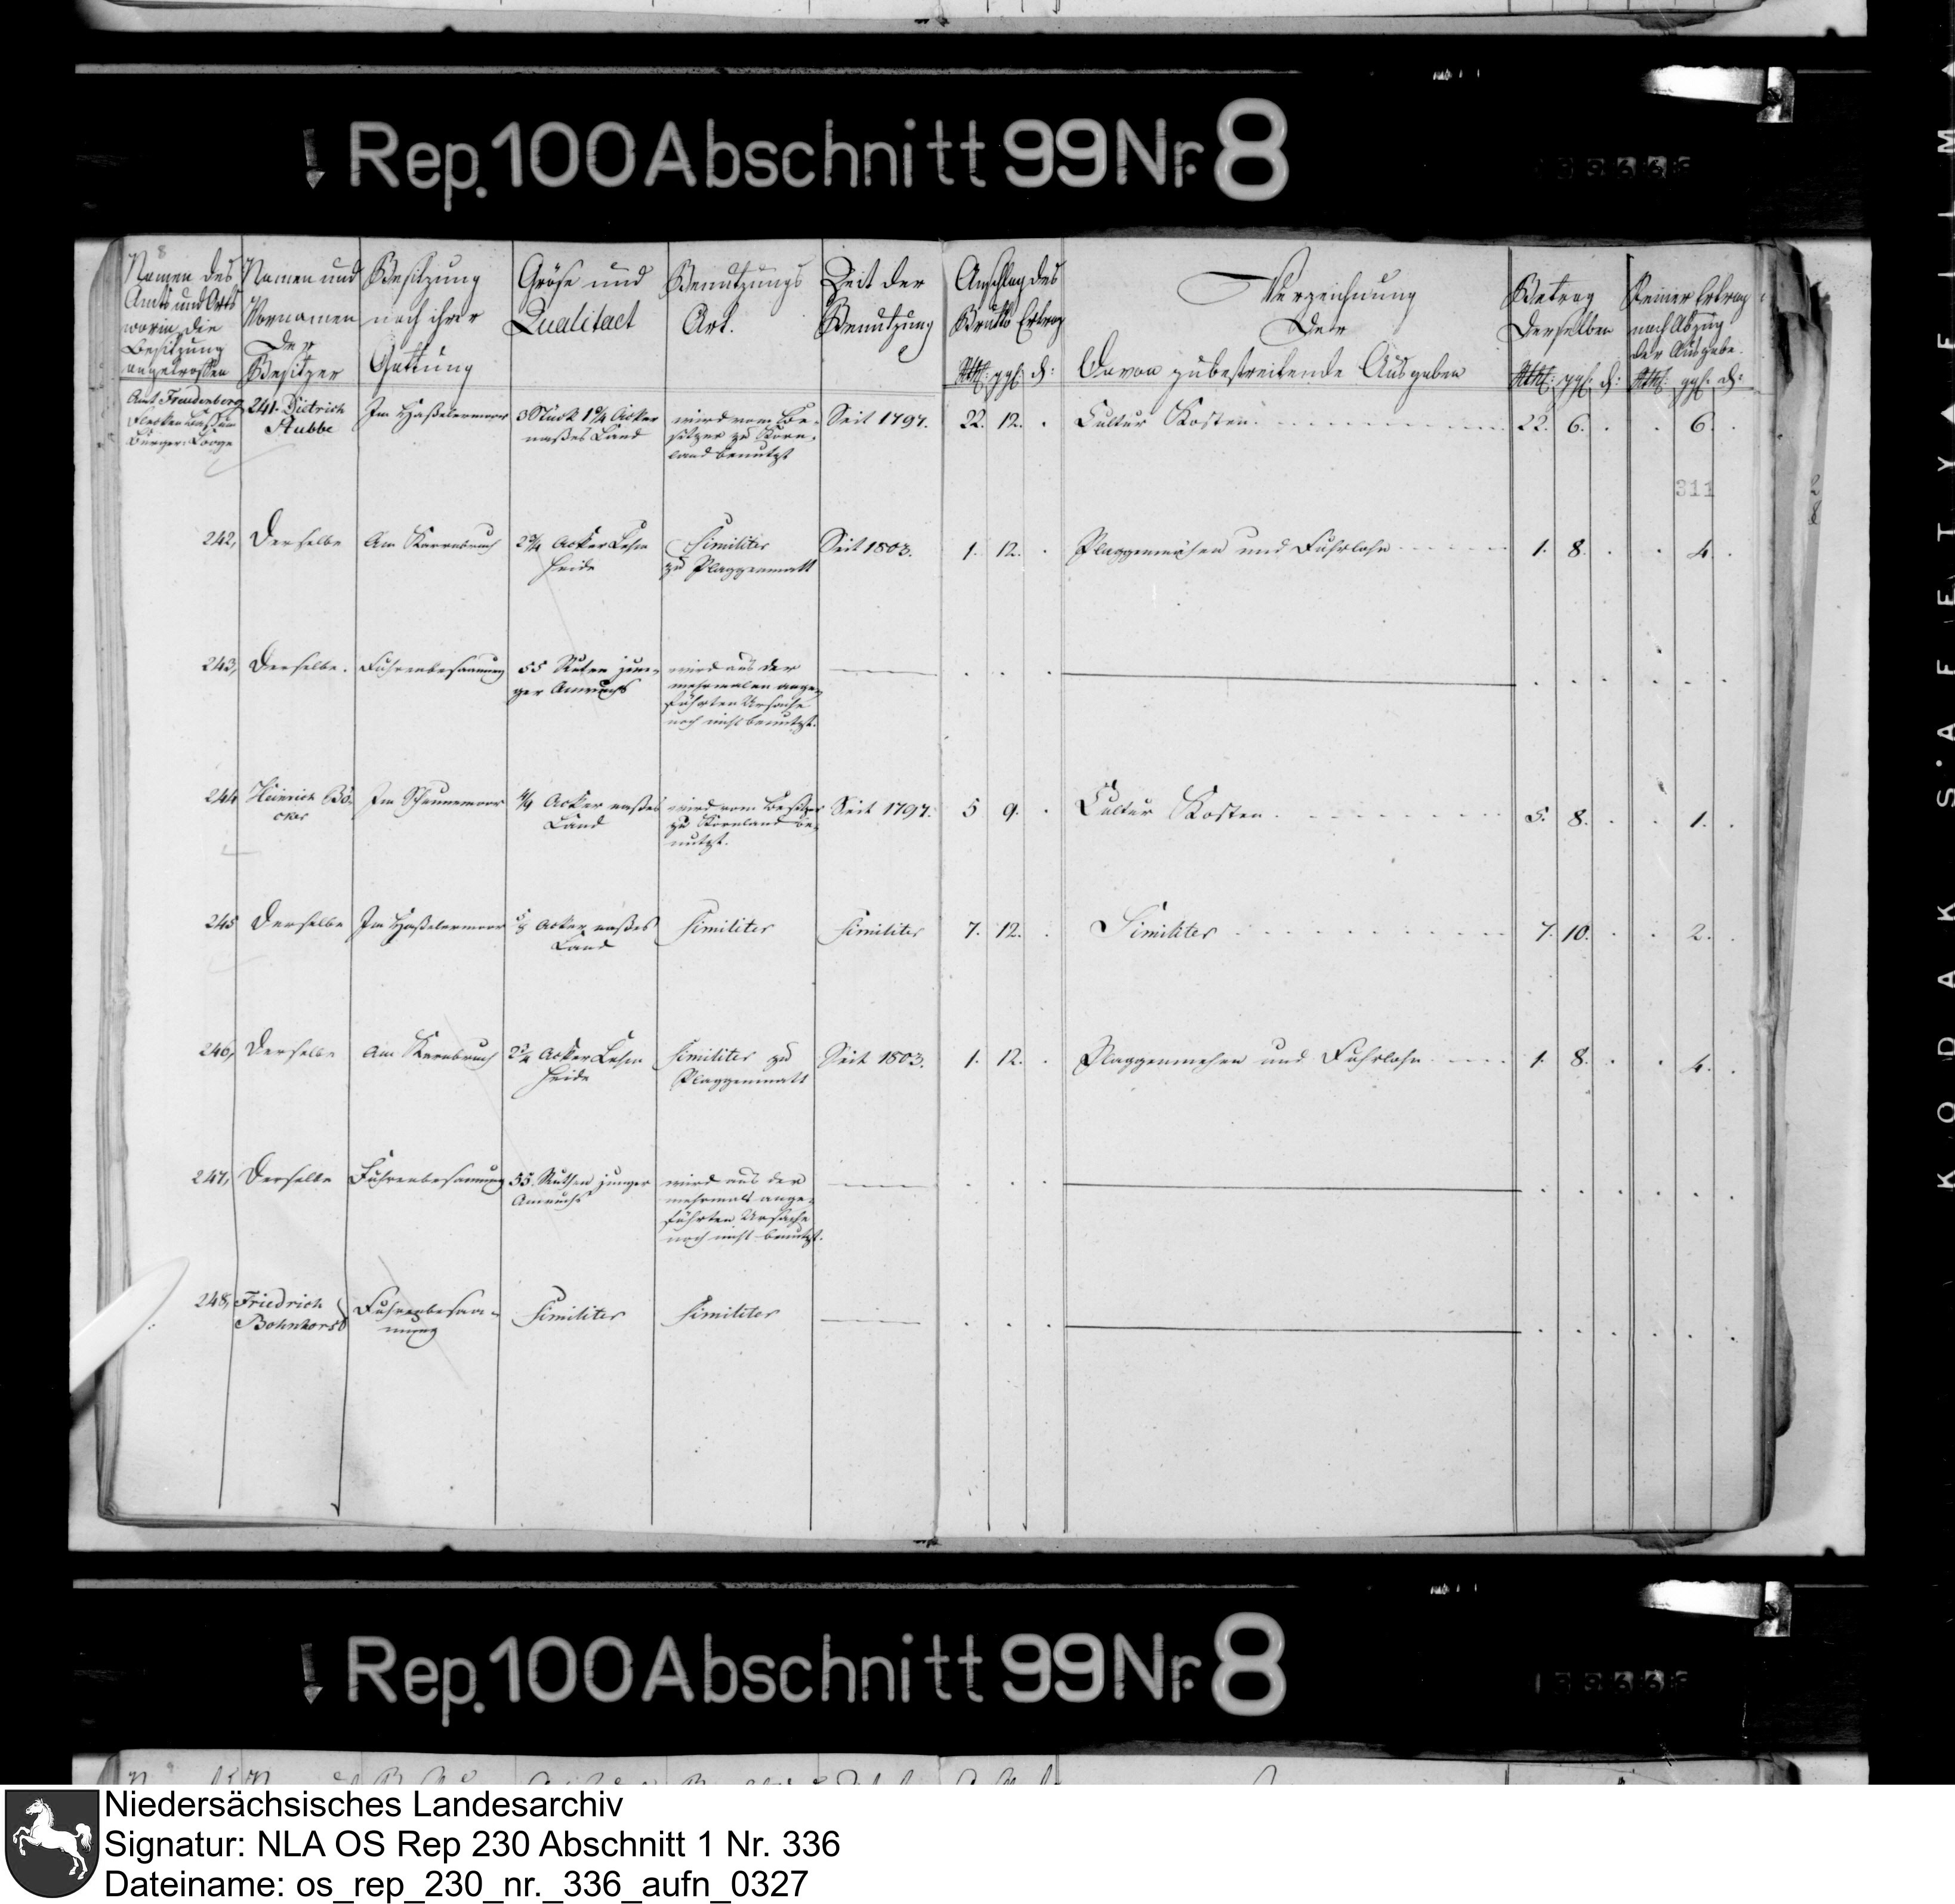 Rep. 100 Abschnitt 99 Nr. 8
8
Namen des Amts und Orts worin die Besitzung angetroffen
Namen und Vornamen der Besitzer
Besitzung nach ihrer Gattung
Gröse und Qualitaet
Benutzungs Art.
Zeit der Benutzung
Anschlag des Brutto Ertrag
Rthl: ggl: d:
Verzeichnung
Der
Davon zubestreitende Ausgaben
Betrag Derselben
Rthl: ggl: d:
Reiner Ertrag nach Abzug der Ausgabe.
Rthl: ggl: d:
Amt Freudenberg
Flecken Bassum
Bürger: Looge
241. Dietrich Stubbe
Im Haßelermoor
3 Stück 1 3/4 Acker naßes Land
wird vom Besitzer zu Kornland benutzt
Seit 1797.
22. 12. .
Cultur Kosten
22. 6. .
. 6. .
311
242, Derselbe
Am Karrnbruch
2 3/4 Acker Lehm Heide
Similiter zu Plaggenmatt
Seit 1803.
1. 12. .
Plaggenmähen und Fuhrlohn
1. 8. .
. 4. .
243, Derselbe.
Fuhrenbesaamung
55 Ruten junger Anwuchs
wird aus der mehrmalen angeführten Ursache noch nicht benutzt.
244 Heinrich Böcker
Im Schunnemoor
Acker naßes Land
wird vom Besitzer zu Kornland benutzt.
Seit 1797.
5 9. .
Cultur Kosten
5. 8. .
. 1. .
245 Derselbe
Im Haßelermoor
5/8 Acker naßes Land
Similiter
Similiter
7. 12. .
Similiter
7. 10. .
. 2. .
246, Derselbe
Am Karnbruch
Acker Lehm Heide
Similiter zu Plaggenmatt
Seit 1803.
1. 12. .
Plaggenmehen und Fuhrlohn
1. 8. .
. 4. .
247, Derselbe
Fuhrenbesaamung
55. Ruthen junger Anwuchs
wird aus der mehrmals angeführten Ursache noch nicht benutzt.
248, Friedrich Bohnhorst
Fuhrenbesaamung
Similiter
Similiter
Rep. 100 Abschnitt 99 Nr. 8
KODAK SAFETY FILM
Niedersächsisches Landesarchiv
Signatur: NLA OS Rep 230 Abschnitt 1 Nr. 336
Dateiname: os_rep_230_nr._336_aufn_0327